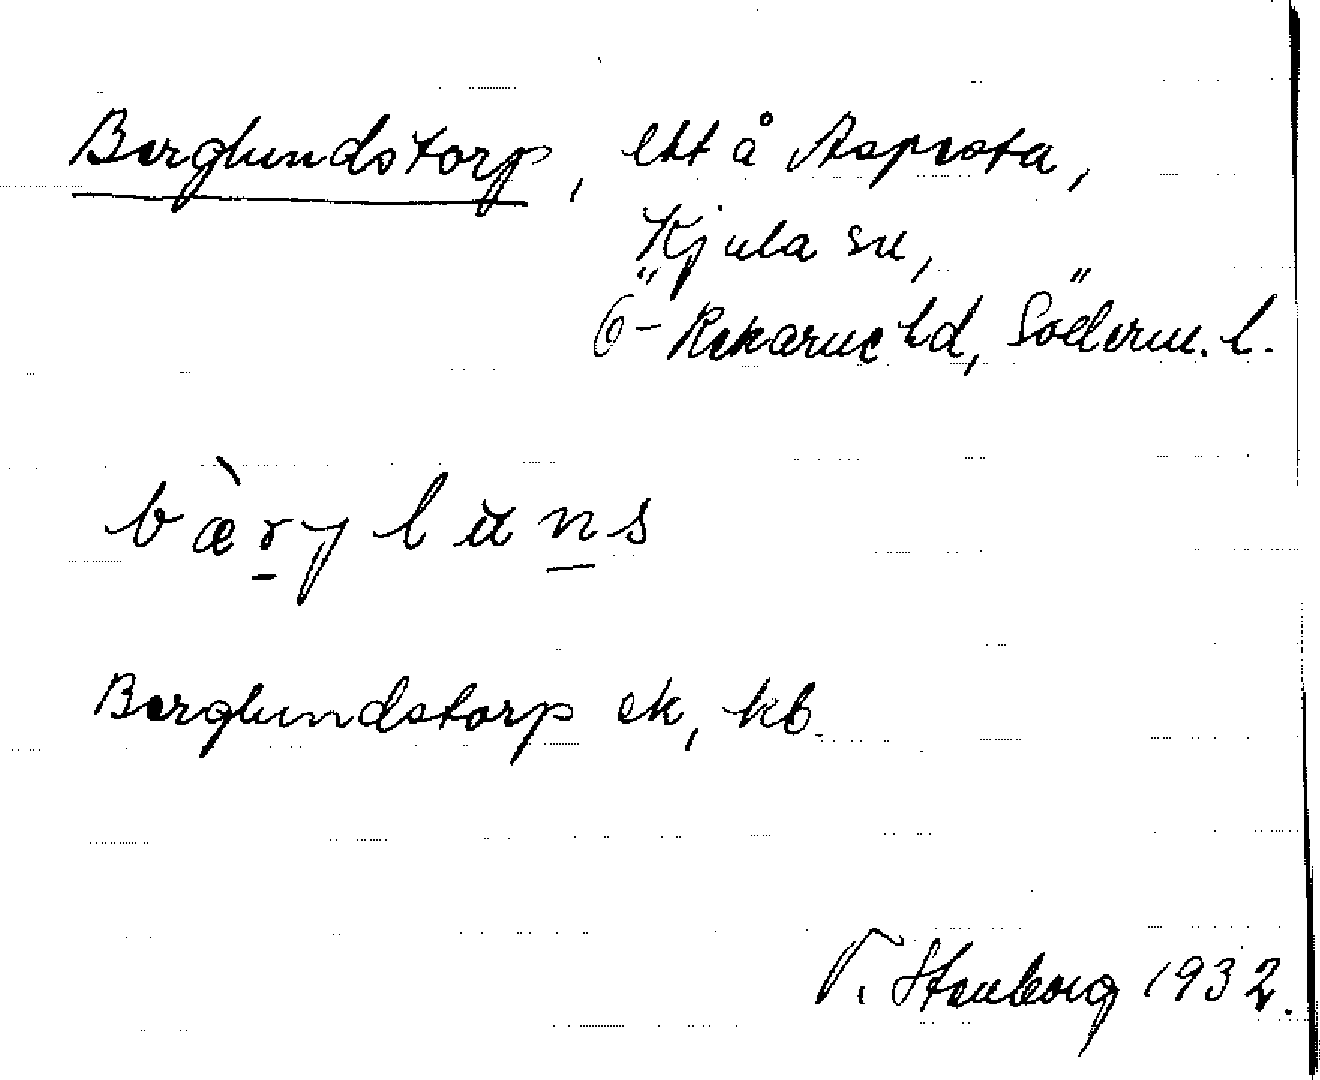 Berglundstorp, lht å Asprsta,
Kjula sn,
Ö-Rekarne hd, Söderm. l.
bæ̀rglu̇ns
Berglundstorp ek, kb.
T. Stenborg 1932.